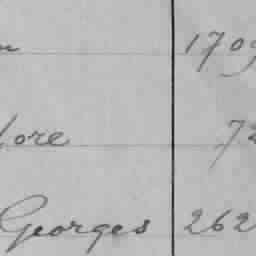 1709
lore 72
Georges 262